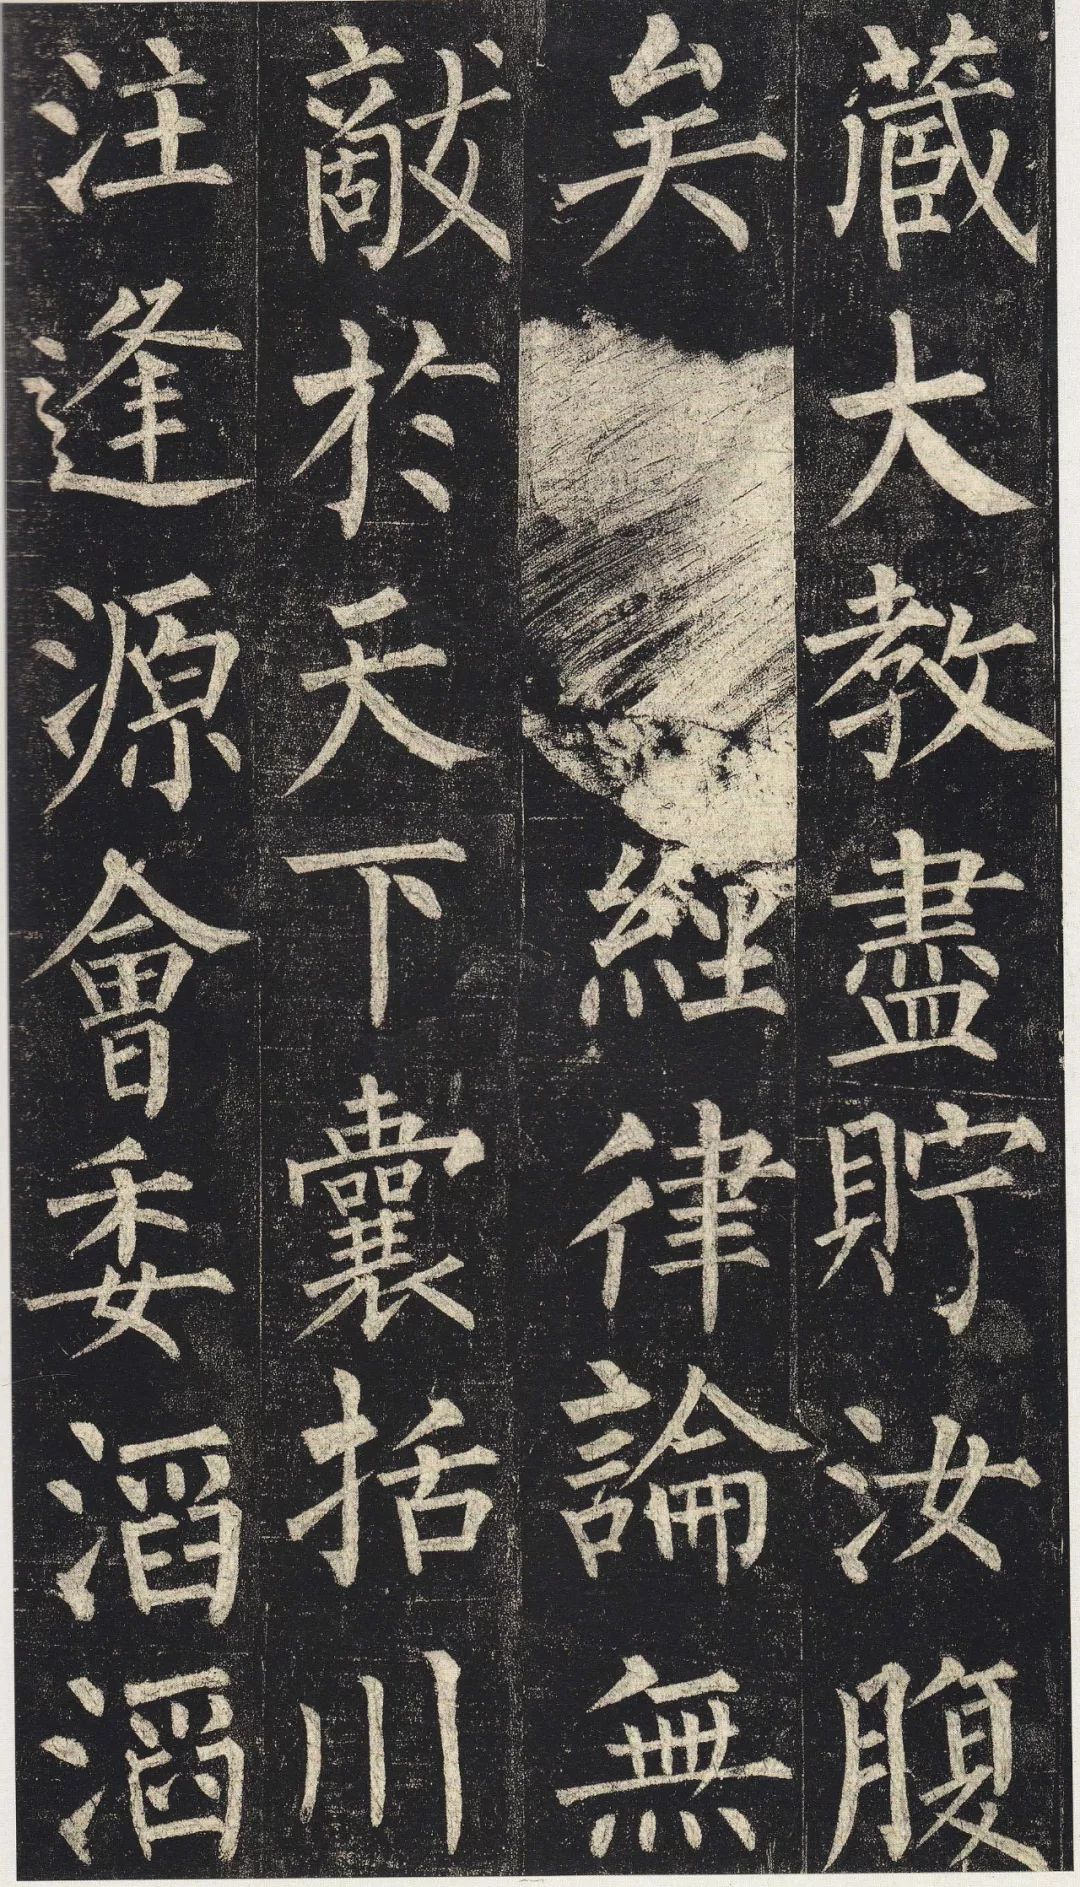 藏大教盡貯汝腹
矣經律論無
敵於天下囊括川
注逢源會委滔滔